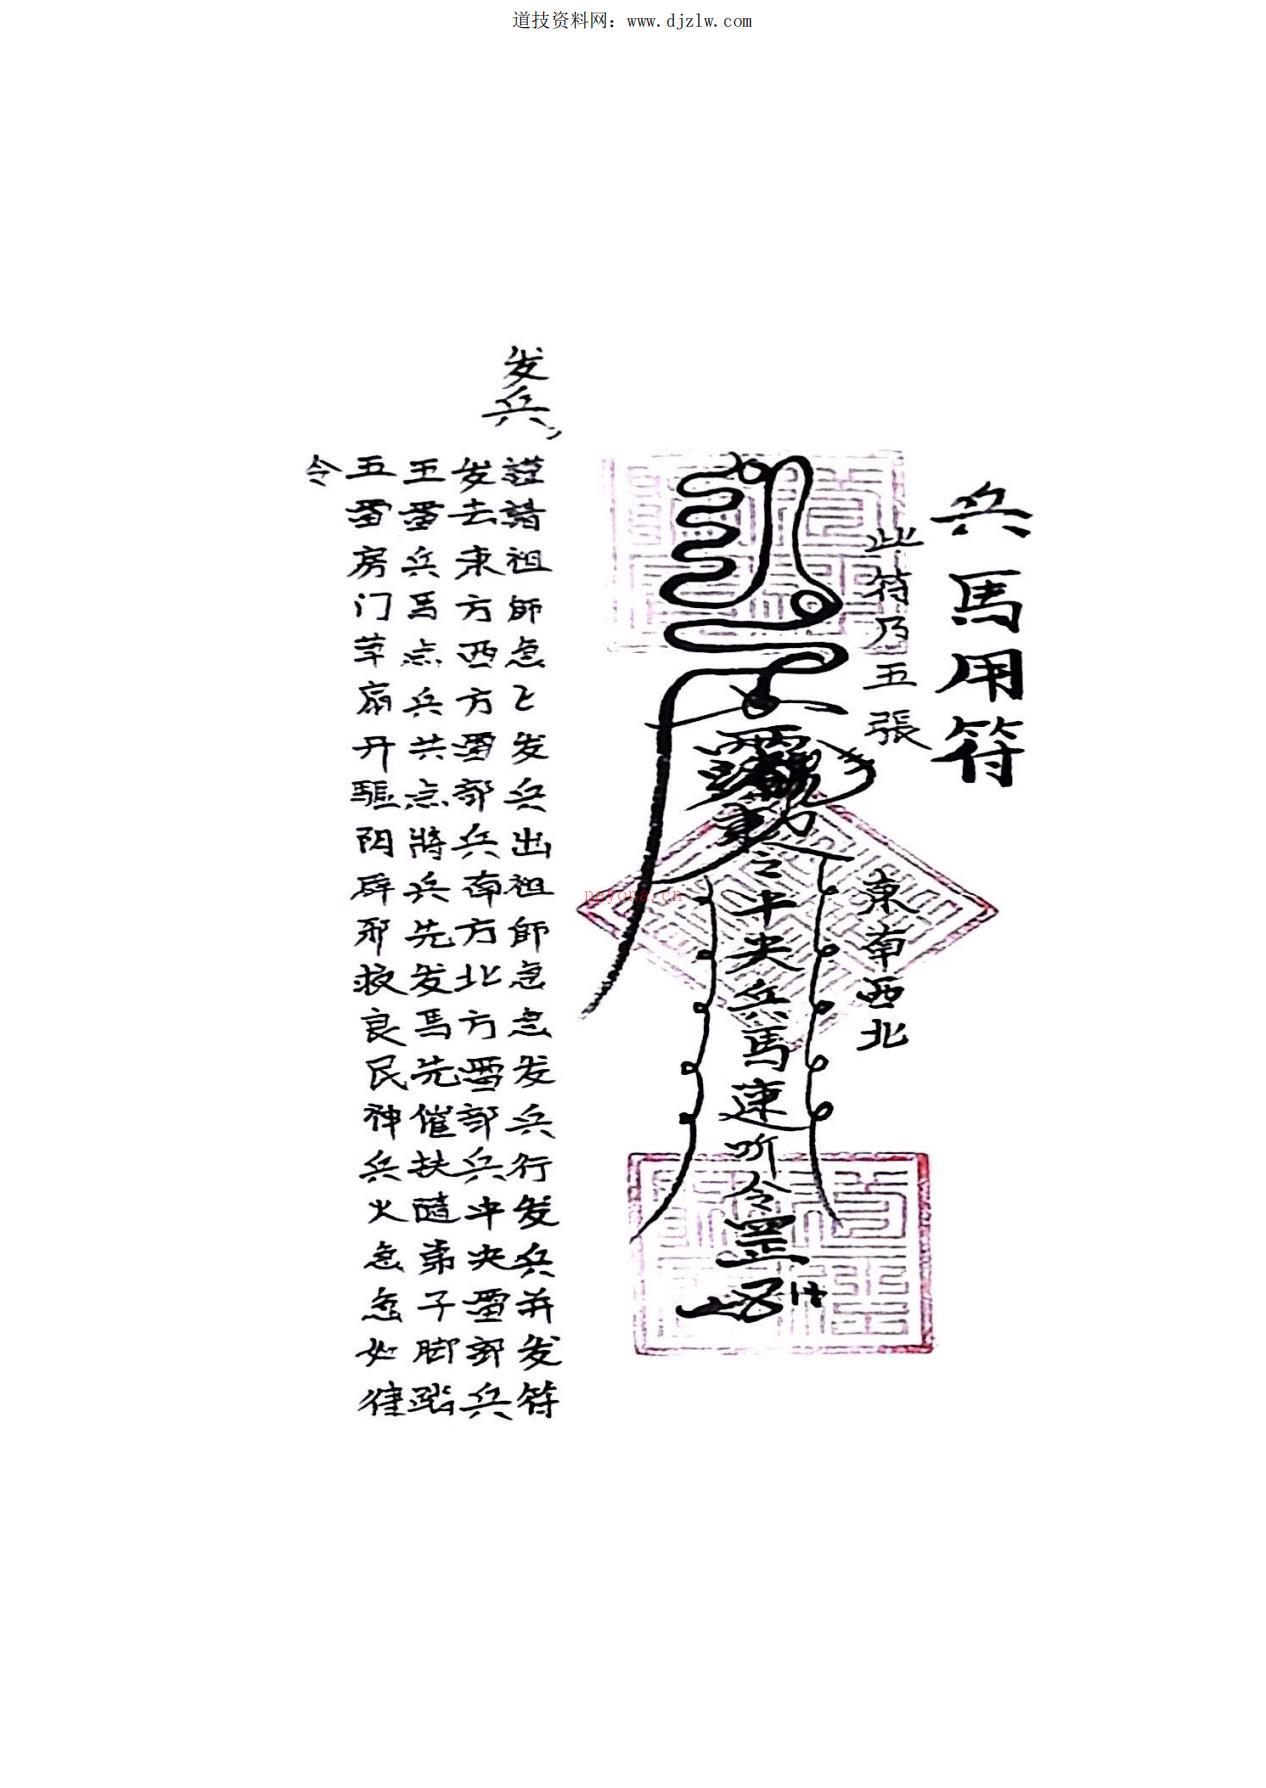 道技资料网：www.djzlw.com
兵馬用符
此符乃五張
東南西北
勅令中央兵馬速听令罡
nayona.cn
发兵
謹請祖師急乚发兵出祖師急急发兵行发兵并发符
发去東方西方雷部兵南方北方雷部兵中央雷部兵
五雷兵馬点兵共点將兵先发馬先催扶隨弟子脚踏
五雷房门莘扇开驅阴辟邪救良民神兵火急急如律
令